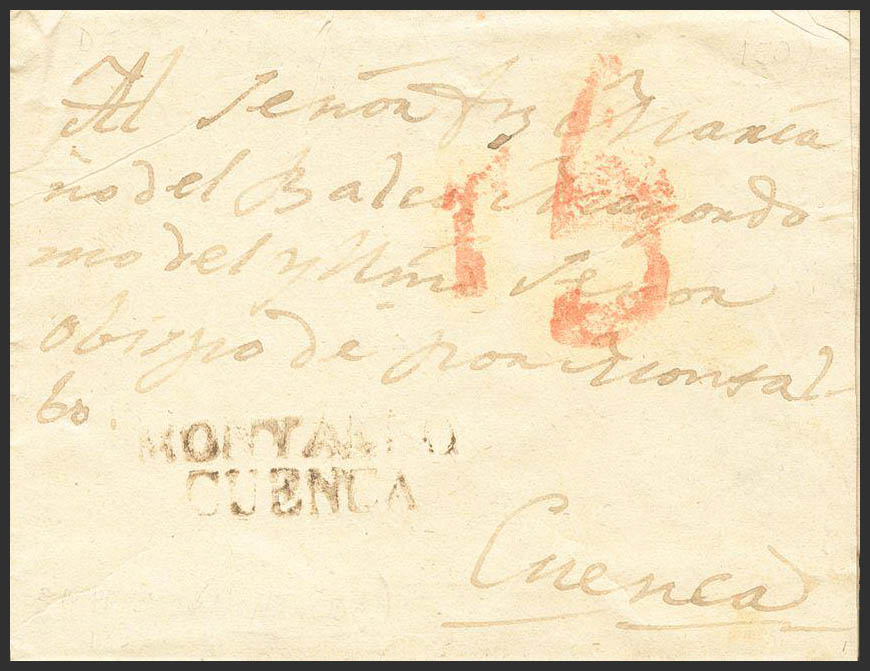 Al Señor Dn Maria
no del Balco Mayordo
mo del yllmo Señor
obispo de por Montal
bo
15
MONTALBO
CUENCA
Cuenca